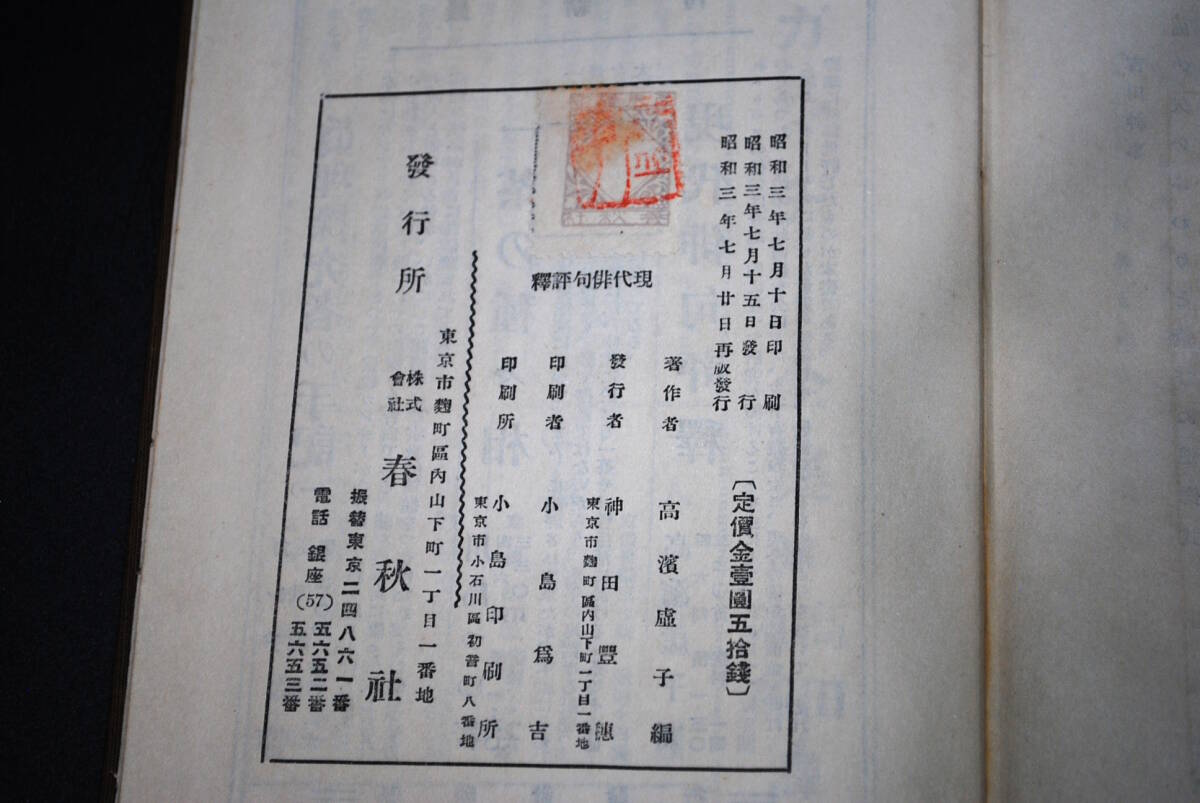 昭和三年七月十日印刷
昭和三年七月十五日發行
昭和三年七月廿日再版發行
〔定價金壹圓五拾錢〕
現代俳句評釋
著作者 高濱虛子編
發行者 神田豐穗
東京市麴町區內山下町一丁目一番地
印刷者 小島爲吉
印刷所 小島印刷所
東京市小石川區初音町八番地
東京市麴町區內山下町一丁目一番地
發行所 株式會社 春秋社
振替東京二四八六一番
電話 銀座(57) 五六五二番
五六五三番